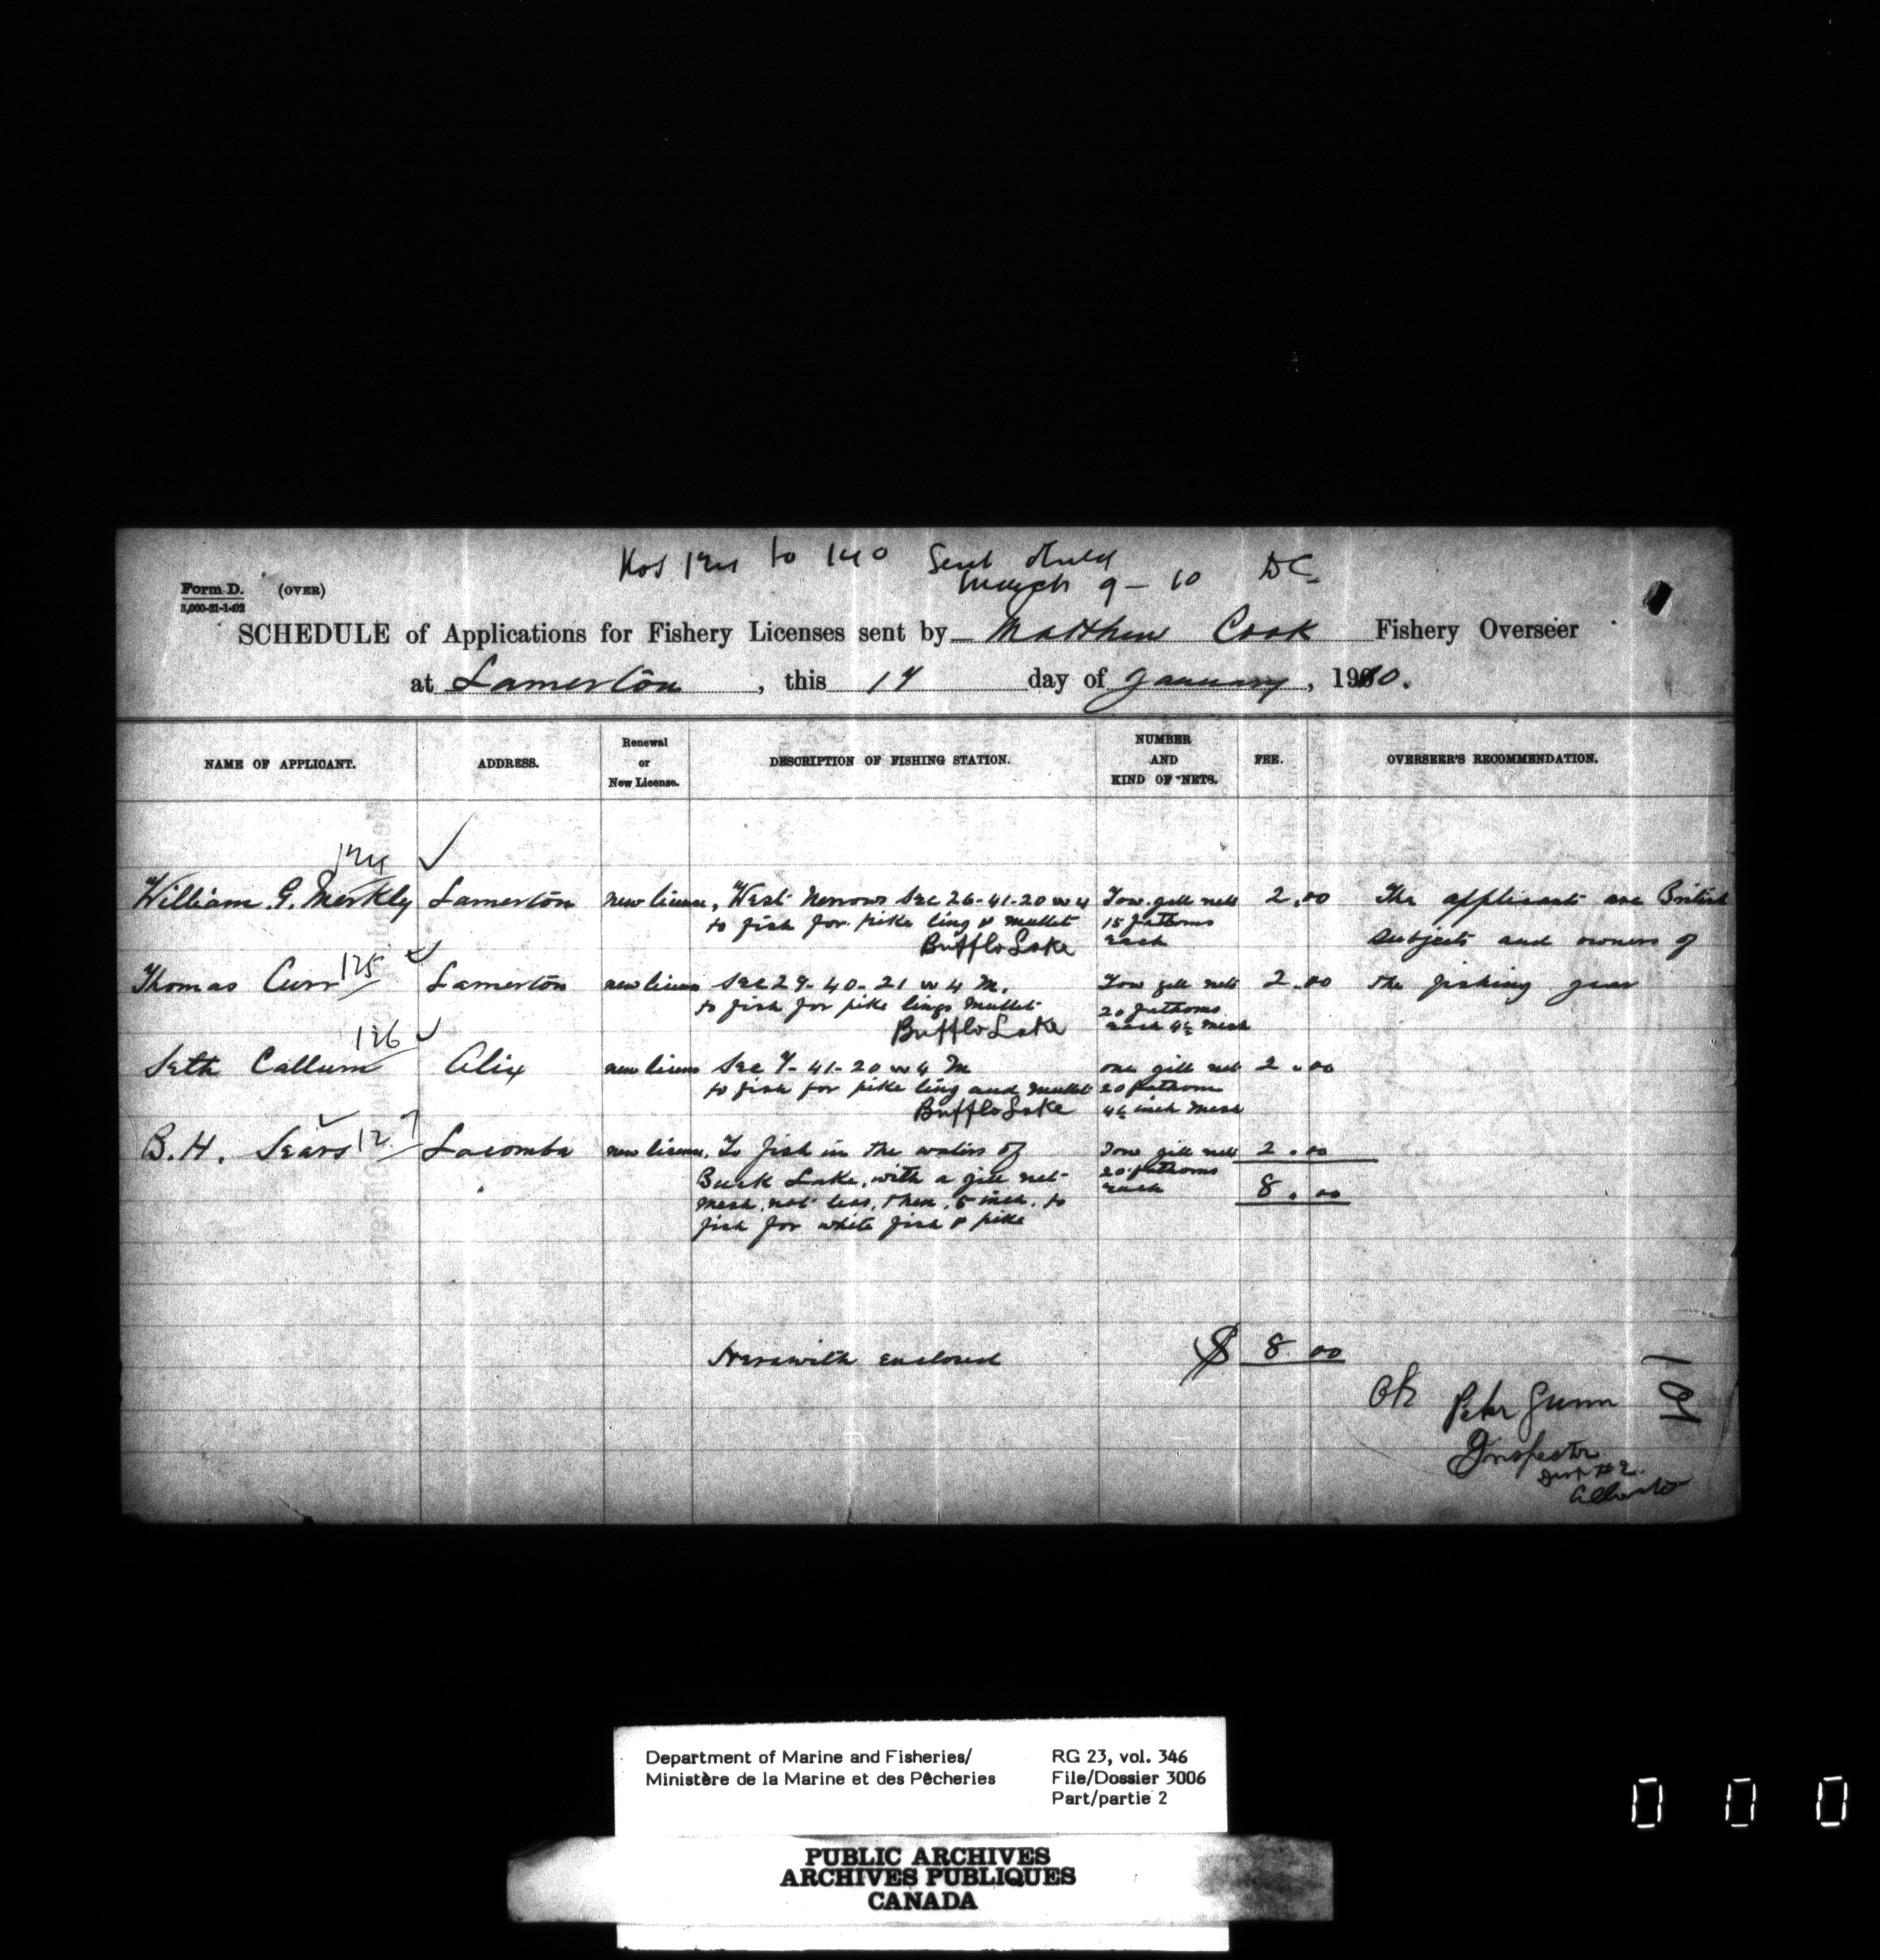 Nos 124 to 140 Sent
March 9 - 10 DC
Form D. (OVER)
3,000-21-1-02
SCHEDULE of Applications for Fishery Licenses sent by Matthew Cook Fishery Overseer
at Lamerton, this 14 day of January, 1910.
NAME OF APPLICANT. ADDRESS. Renewal or New License. DESCRIPTION OF FISHING STATION. NUMBER AND KIND OF NETS. FEE. OVERSEER'S RECOMMENDATION.
124 ✓
William G. Merkly Lamerton new license, West Nerrows Sec 26-41-20 w 4 Tow gill nets 2.00 The applicants are British
to fish for pike ling & mullet 15 fathoms
Bufflo Lake each subjects and owners of
125 ✓
Thomas Curr Lamerton new licens Sec 29-40-21 w 4 M. Tow gill nets 2.00 the fishing gear
to fish for pike lings mullet 20 fathoms
Bufflo Lake each 4½ mesh
126 ✓
Seth Callum Alix new licens Sec 7-41-20 w 4 M one gill net 2.00
to fish for pike ling and mullet 20 fathom
Bufflo Lake 4½ inch mesh
✓ 127
B.H. Sears Lacombe new license. To fish in the waters of Tow gill nets 2.00
Buck Lake, with a gill net 20 fathoms
mesh, not less, then, 5 inch, to each 8.00
fish for white fish & pike
Herewith enclosed $ 8 00
OK Peter Gunn
Inspector
Dist #2
Alberta
109
Department of Marine and Fisheries/
Ministère de la Marine et des Pêcheries
RG 23, vol. 346
File/Dossier 3006
Part/partie 2
PUBLIC ARCHIVES
ARCHIVES PUBLIQUES
CANADA
0 0 0